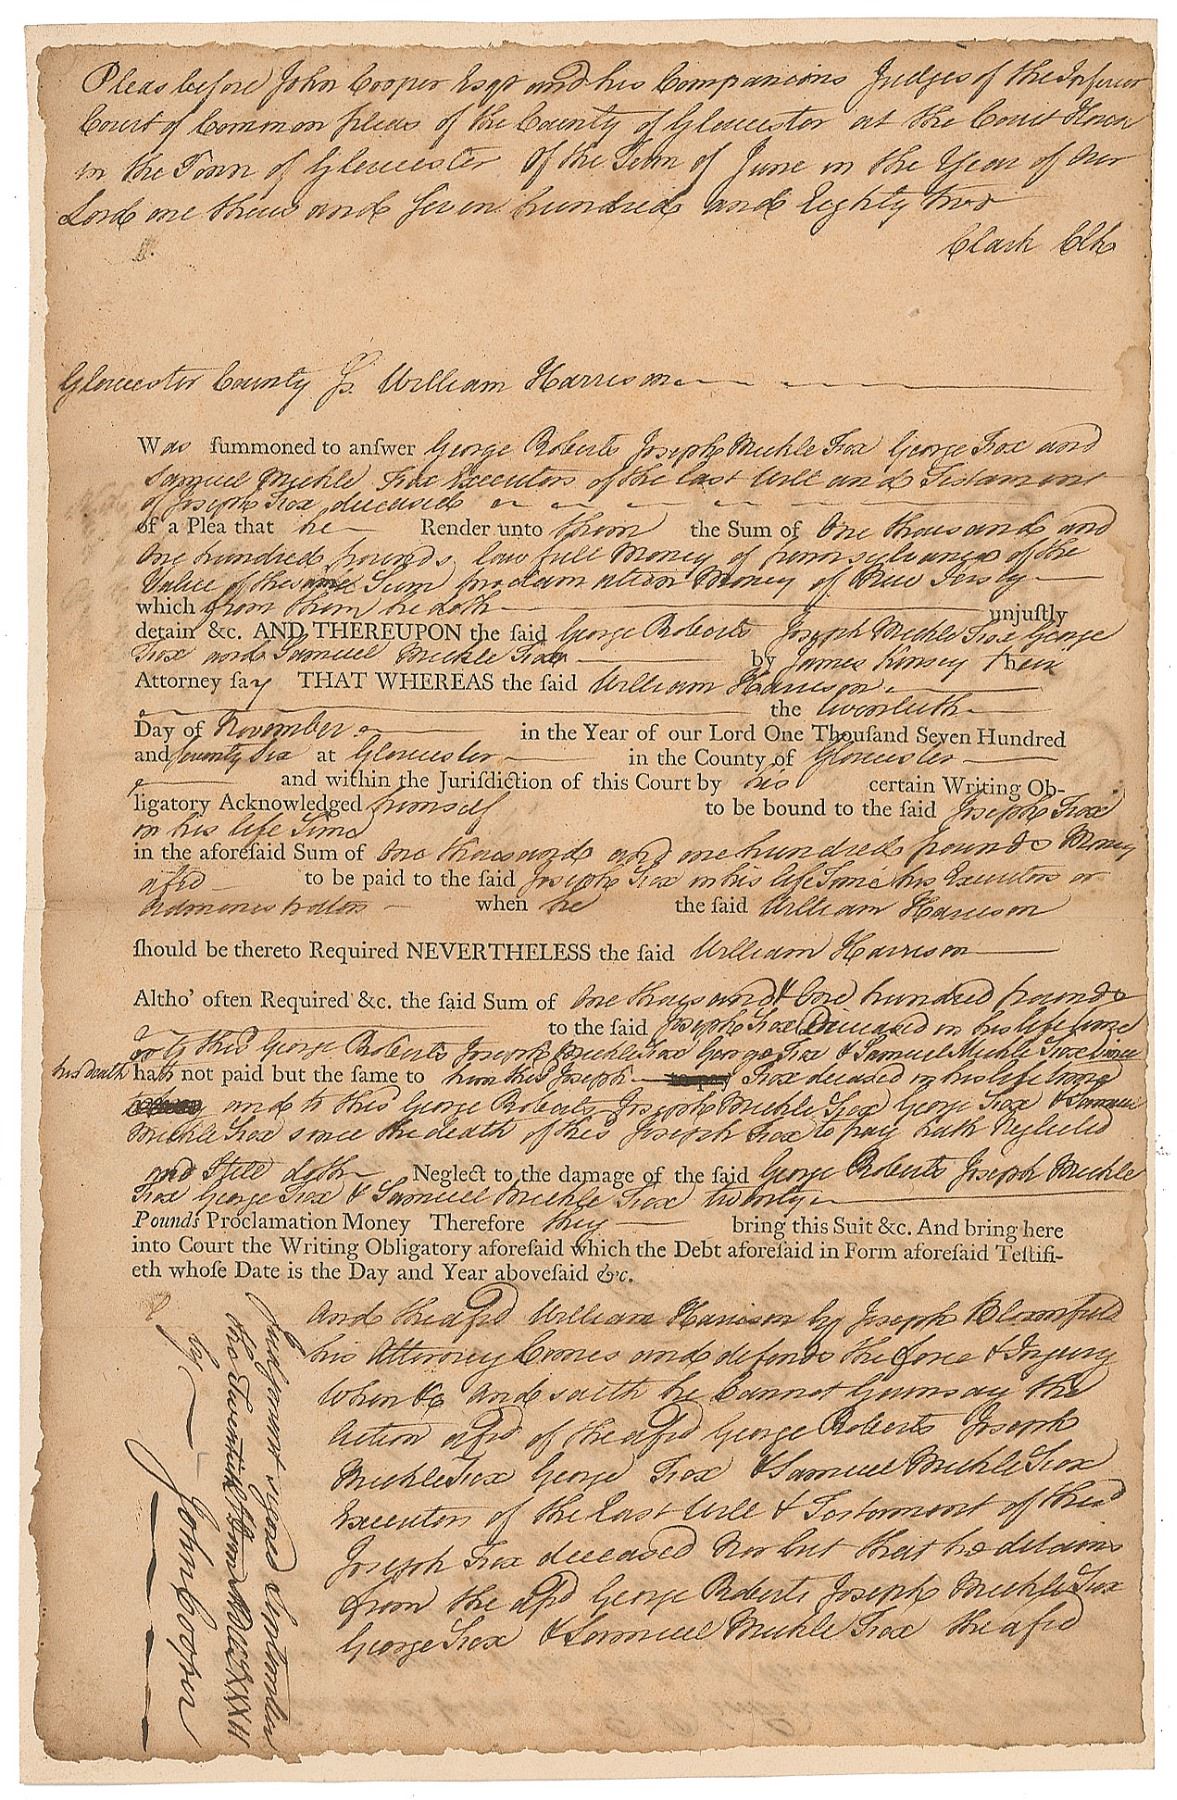 Pleas before John Cooper Esqr and his Companions Judges of the Inferior
Court of Common pleas of the County of Gloucester at the Court House
in the Town of Gloucester Of the Term of June in the Year of our
Lord one thous and Seven hundred and Eighty two
Clark Clk
Gloucester County ſs. William Harrison
Was ſummoned to anſwer George Roberts Joseph Mickle Fox George Fox and
Samuel Mickle Fox Executors of the last Will and Testament
of Joseph Fox deceased
of a Plea that he Render unto them the Sum of One thousand and
One hundred pounds lawfull Money of pennsylvania of the
Value of the same Sum proclamation Money of New Jersey
which from them he doth unjuſtly
detain &c. AND THEREUPON the ſaid George Roberts Joseph Mickle Fox George
Fox and Samuel Mickle Fox by James Kinsey their
Attorney ſay THAT WHEREAS the ſaid William Harrison
the twentieth
Day of November in the Year of our Lord One Thouſand Seven Hundred
and Seventy Six at Gloucester in the County of Gloucester
and within the Juriſdiction of this Court by his certain Writing Ob-
ligatory Acknowledged himself to be bound to the ſaid Joseph Fox
in his life Time
in the aforeſaid Sum of One thousand and one hundred pounds Money
afsd to be paid to the ſaid Joseph Fox in his life Time his Executors or
Administrators when he the ſaid William Harrison
ſhould be thereto Required NEVERTHELESS the ſaid William Harrison
Altho' often Required &c. the ſaid Sum of One thousand & One hundred pounds
to the ſaid Joseph Fox Deceased in his life time
or to the sd George Roberts Joseph Mickle Fox George Fox & Samuel Mickle Fox Since
his death hath not paid but the same to him the sd Joseph Fox deceased in his life time
and to the sd George Roberts Joseph Mickle Fox George Fox & Samuel
Mickle Fox since the death of the sd Joseph Fox to pay hath Neglected
and Still doth Neglect to the damage of the ſaid George Roberts Joseph Mickle
Fox George Fox & Samuel Mickle Fox twenty
Pounds Proclamation Money Therefore they bring this Suit &c. And bring here
into Court the Writing Obligatory aforeſaid which the Debt aforeſaid in Form aforeſaid Teſtifi-
eth whoſe Date is the Day and Year aboveſaid &c.
And the afsd William Harrison by Joseph Bloomfield
his Attorney Comes and defends the force & Injury
When &c And saith he Cannot Gainsay the
Action afsd of the afsd George Roberts Joseph
Mickle Fox George Fox & Samuel Mickle Fox
Executors of the Last Will & Testament of the sd
Joseph Fox deceased Nor but that he detains
from the afsd George Roberts Joseph Mickle Fox
George Fox & Samuel Mickle Fox the afsd
Judgement signed September
the Twentieth MDCCLXXXII
by
John Cooper